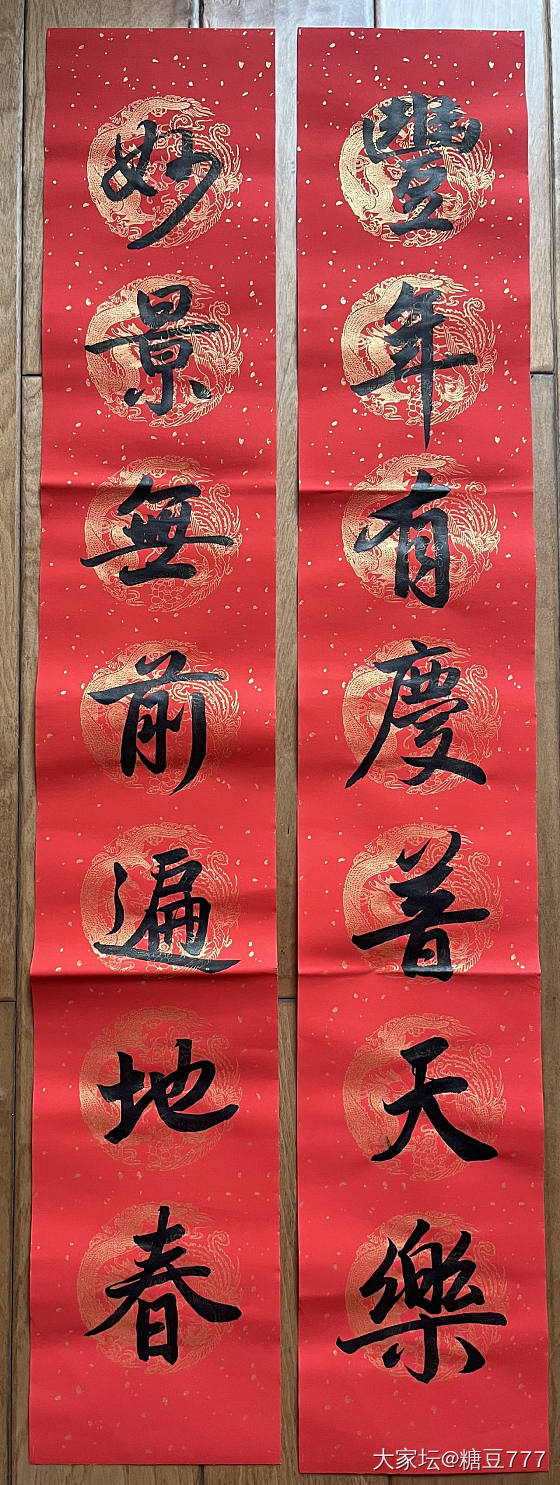 豐年有慶普天樂
妙景無前遍地春
大家坛@糖豆777